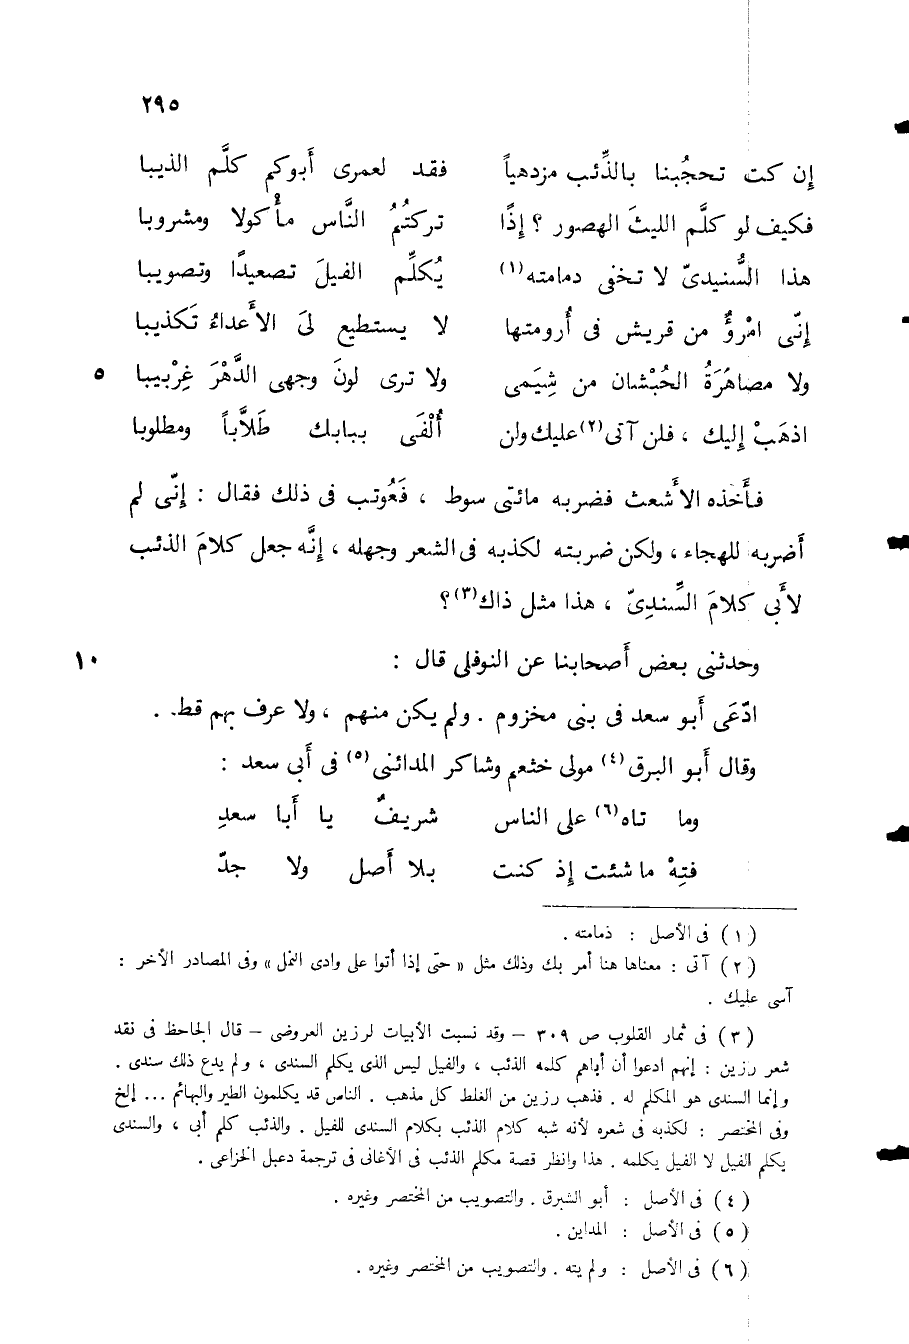 ٢٩٥
إِن كت تحجُبنا بالذِّئب مزدهياً فقد لعمرى أَبوكم كلَّم الذيبا
فكيف لو كلَّم الليثَ الهصور ؟ إِذًا تركتُمُ النَّاس مأْكولا ومشروبا
هذا السُّنيدىّ لا تخفى دمامته(١) يُكلِّم الفيلَ تصعيدًا وتصويبا
إِنّى امْرؤٌ من قريش فى أُرومتها لا يستطيع لىَ الأَعداءُ تكذيبا
ولا مصاهَرَةُ الحُبْشان من شِيَمى ولا ترى لونَ وجهى الدَّهْرَ غِرْبيبا ٥
اذهَبْ إِليك ، فلن آتى(٢) عليك ولن أُلْفَى ببابك طَلاَّباً ومطلوبا
فأَخذه الأَشعث فضربه مائتى سوط ، فَعُوتب فى ذلك فقال : إِنّى لم
أَضربه للهجاء ، ولكن ضربته لكذبه فى الشعر وجهله ، إِنَّه جعل كلامَ الذئب
لأَبى كلامَ السِّندِىّ ، هذا مثل ذاك(٣)؟
وحدثنى بعض أَصحابنا عن النوفلى قال : ١٠
ادّعَى أَبو سعد فى بنى مخزوم . ولم يكن منهم ، ولا عرف بهم قط .
وقال أَبو البرق(٤) مولى خثعم وشاكر المدائنى(٥) فى أَبى سعد :
وما تاه(٦) على الناس شريفٌ يا أَبا سعدِ
فتِهْ ما شئت إِذ كنت بلا أَصل ولا جدّ
(١) فى الأصل : ذمامته .
(٢) آتى : معناها هنا أمر بك وذلك مثل « حتى إذا أتوا على وادى النمل » وفى المصادر الأخر :
آسى عليك .
(٣) فى ثمار القلوب ص ٣٠٩ – وقد نسبت الأبيات لرزين العروضى – قال الجاحظ فى نقد
شعر رزين : إنهم ادعوا أن أباهم كلمه الذئب ، والفيل ليس الذى يكلم السندى ، ولم يدع ذلك سندى .
وإنما السندى هو المكلم له . فذهب رزين من الغلط كل مذهب . الناس قد يكلمون الطير والبهائم ... إلخ
وفى المختصر : لكذبه فى شعره لأنه شبه كلام الذئب بكلام السندى للفيل . والذئب كلم أبى ، والسندى
يكلم الفيل لا الفيل يكلمه . هذا وانظر قصة مكلم الذئب فى الأغانى فى ترجمة دعبل الخزاعى .
(٤) فى الأصل : أبو الشبرق . والتصويب من المختصر وغيره .
(٥) فى الأصل : المداين .
(٦) فى الأصل : ولم يته . والتصويب من المختصر وغيره .